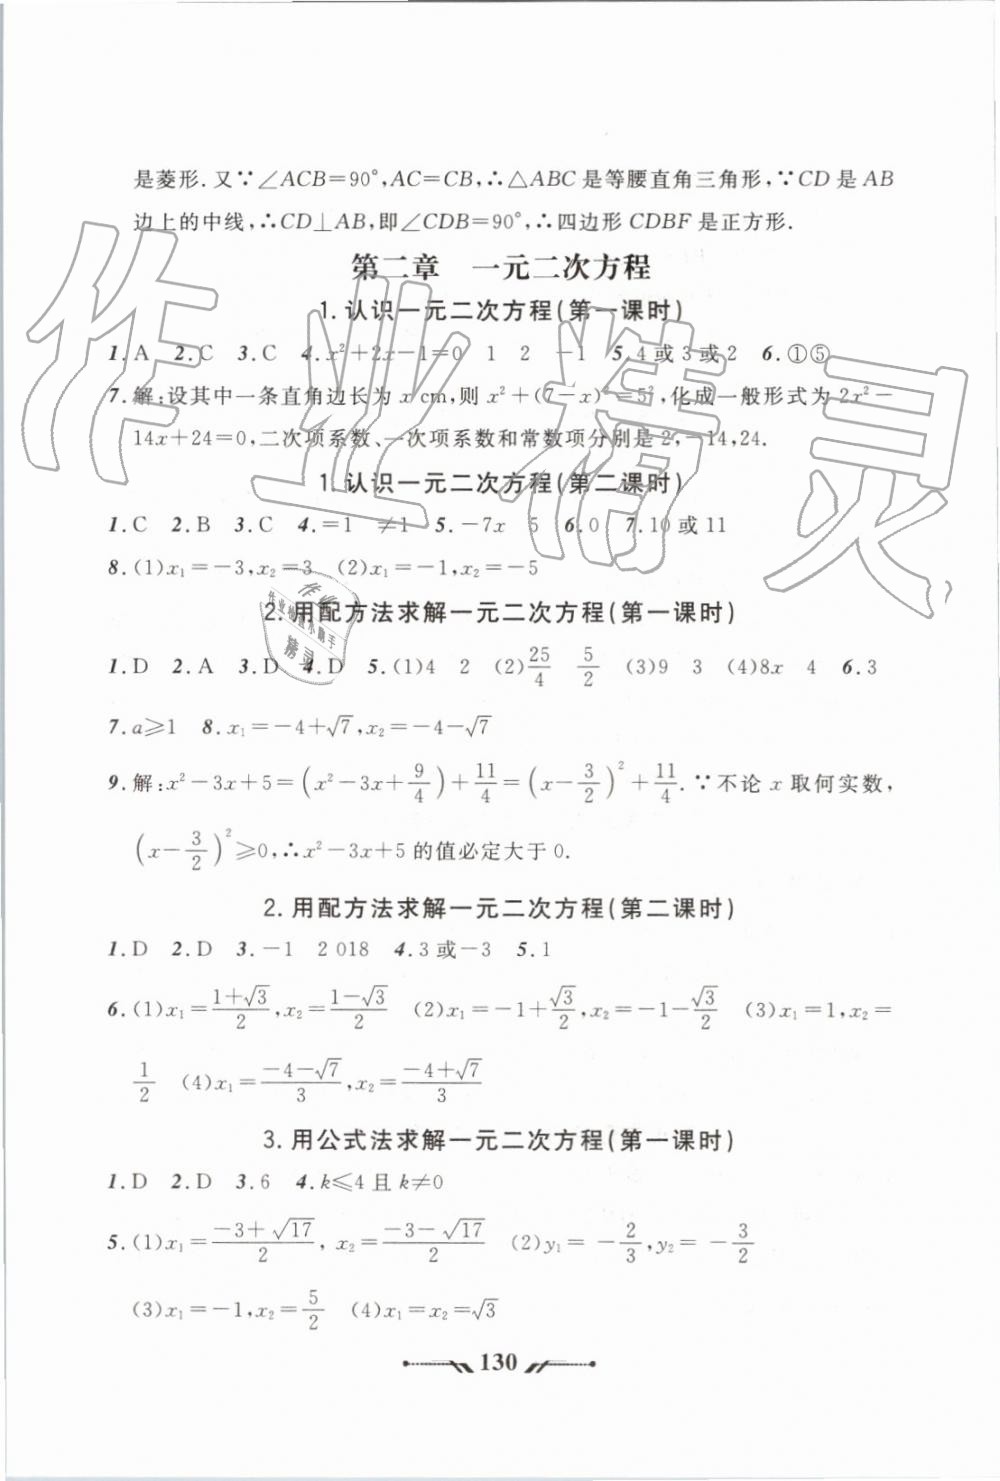 是菱形.又∵∠ACB=90°,AC=CB,∴△ABC是等腰直角三角形,∵CD是AB
边上的中线,∴CD⊥AB,即∠CDB=90°,∴四边形CDBF是正方形.
第二章　一元二次方程
1.认识一元二次方程(第一课时)
1.A　2.C　3.C　4.x²+2x-1=0　1　2　-1　5.4或3或2　6.①⑤
7.解:设其中一条直角边长为x cm,则x²+(7-x)²=5²,化成一般形式为2x²-
14x+24=0,二次项系数、一次项系数和常数项分别是2,-14,24.
1.认识一元二次方程(第二课时)
1.C　2.B　3.C　4.=1　≠1　5.-7x　5　6.0　7.10或11
8.(1)x₁=-3,x₂=3　(2)x₁=-1,x₂=-5
2.用配方法求解一元二次方程(第一课时)
1.D　2.A　3.D　4.D　5.(1)4　2　(2)25/4　5/2　(3)9　3　(4)8x　4　6.3
7.a≥1　8.x₁=-4+√7,x₂=-4-√7
9.解:x²-3x+5=(x²-3x+9/4)+11/4=(x-3/2)²+11/4.∵不论x取何实数,
(x-3/2)²≥0,∴x²-3x+5的值必定大于0.
2.用配方法求解一元二次方程(第二课时)
1.D　2.D　3.-1　2 018　4.3或-3　5.1
6.(1)x₁=(1+√3)/2,x₂=(1-√3)/2　(2)x₁=-1+√3/2,x₂=-1-√3/2　(3)x₁=1,x₂=
1/2　(4)x₁=(-4-√7)/3,x₂=(-4+√7)/3
3.用公式法求解一元二次方程(第一课时)
1.D　2.D　3.6　4.k≤4且k≠0
5.(1)x₁=(-3+√17)/2,x₂=(-3-√17)/2　(2)y₁=-2/3,y₂=-3/2
(3)x₁=-1,x₂=5/2　(4)x₁=x₂=√3
130
作业精灵
作业
精灵